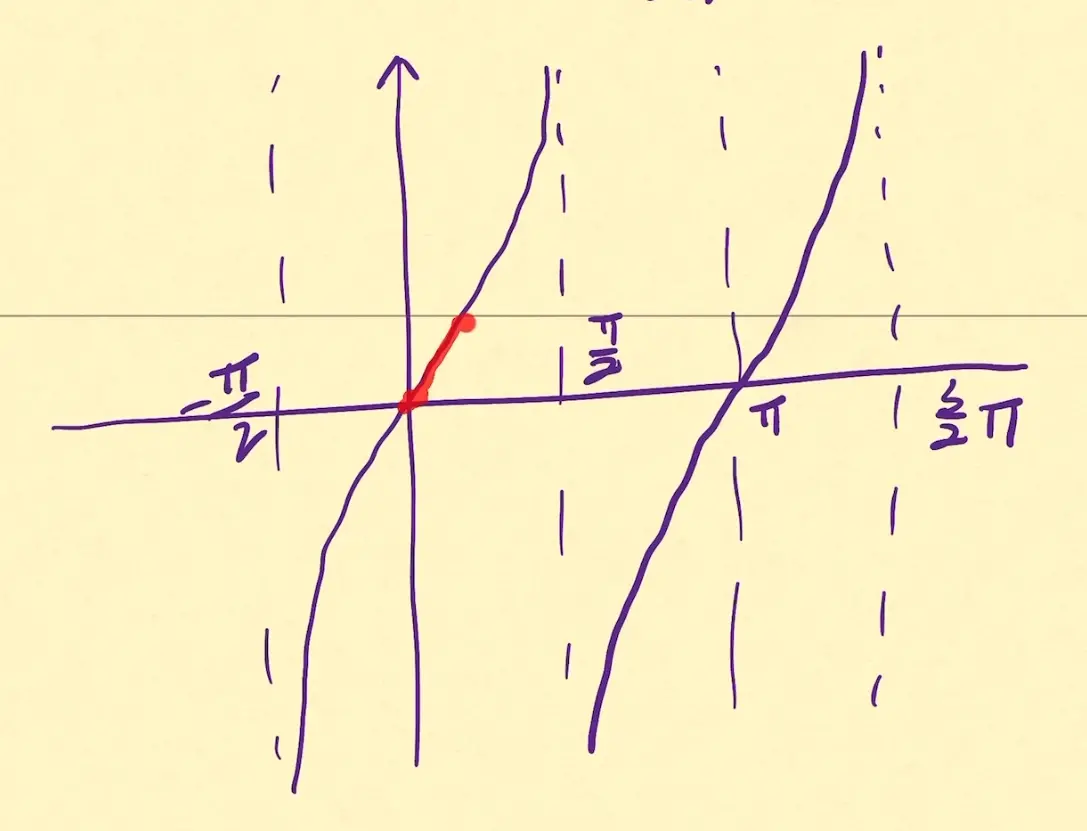 π/2
-π/2
π
3/2 π